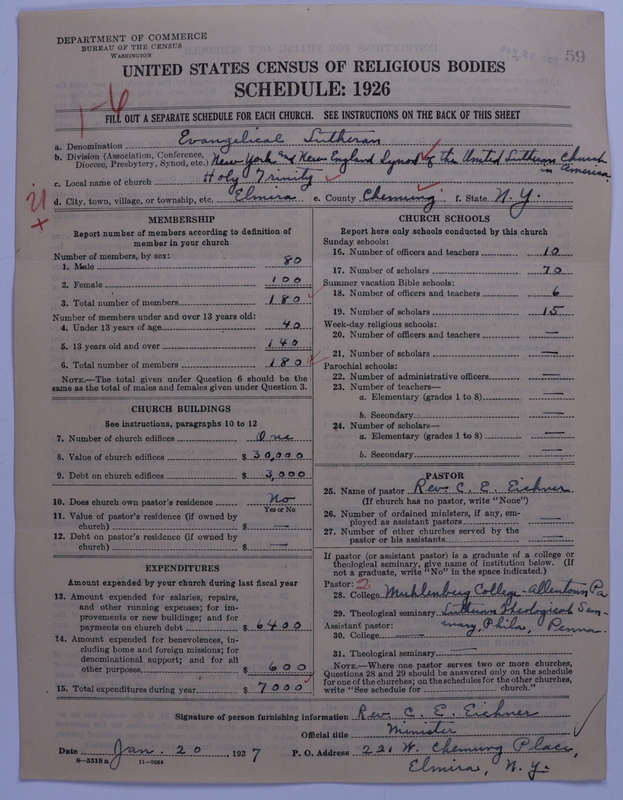 DEPARTMENT OF COMMERCE
BUREAU OF THE CENSUS
WASHINGTON
59
UNITED STATES CENSUS OF RELIGIOUS BODIES
SCHEDULE: 1926
1-6
FILL OUT A SEPARATE SCHEDULE FOR EACH CHURCH. SEE INSTRUCTIONS ON THE BACK OF THIS SHEET
a. Denomination Evangelical Lutheran
b. Division (Association, Conference, Diocese, Presbytery, Synod, etc.) New York and New England Synod of the United Lutheran Church in America
c. Local name of church Holy Trinity
d. City, town, village, or township, etc. Elmira e. County Chemung f. State N. Y.
MEMBERSHIP
Report number of members according to definition of
member in your church
Number of members, by sex:
1. Male 80
2. Female 100
3. Total number of members 180
Number of members under and over 13 years old:
4. Under 13 years of age 40
5. 13 years old and over 140
6. Total number of members 180
NOTE.—The total given under Question 6 should be the
same as the total of males and females given under Question 3.
CHURCH BUILDINGS
See instructions, paragraphs 10 to 12
7. Number of church edifices One
8. Value of church edifices $ 30,000
9. Debt on church edifices $ 3,000
10. Does church own pastor's residence No
Yes or No
11. Value of pastor's residence (if owned by
church) $ —
12. Debt on pastor's residence (if owned by
church) $ —
EXPENDITURES
Amount expended by your church during last fiscal year
13. Amount expended for salaries, repairs,
and other running expenses; for im-
provements or new buildings; and for
payments on church debt $ 6400
14. Amount expended for benevolences, in-
cluding home and foreign missions; for
denominational support; and for all
other purposes $ 600
15. Total expenditures during year $ 7000
CHURCH SCHOOLS
Report here only schools conducted by this church
Sunday schools:
16. Number of officers and teachers 10
17. Number of scholars 70
Summer vacation Bible schools:
18. Number of officers and teachers 6
19. Number of scholars 15
Week-day religious schools:
20. Number of officers and teachers —
21. Number of scholars —
Parochial schools:
22. Number of administrative officers —
23. Number of teachers—
a. Elementary (grades 1 to 8) —
b. Secondary —
24. Number of scholars—
a. Elementary (grades 1 to 8) —
b. Secondary —
PASTOR
25. Name of pastor Rev. C. E. Eichner
(If church has no pastor, write "None")
26. Number of ordained ministers, if any, em-
ployed as assistant pastors —
27. Number of other churches served by the
pastor or his assistants —
If pastor (or assistant pastor) is a graduate of a college or
theological seminary, give name of institution below. (If
not a graduate, write "No" in the space indicated.)
Pastor: 2
28. College Muhlenberg College - Allentown Pa
29. Theological seminary Lutheran Theological Sem-
Assistant pastor: inary, Phila, Penna.
30. College
31. Theological seminary —
NOTE.—Where one pastor serves two or more churches,
Questions 28 and 29 should be answered only on the schedule
for one of the churches; on the schedules for the other churches,
write "See schedule for church."
Signature of person furnishing information Rev. C. E. Eichner
Official title Minister
Date Jan. 20 1927 P. O. Address 221 W. Chemung Place,
Elmira, N. Y.
8-5518a 11-9054